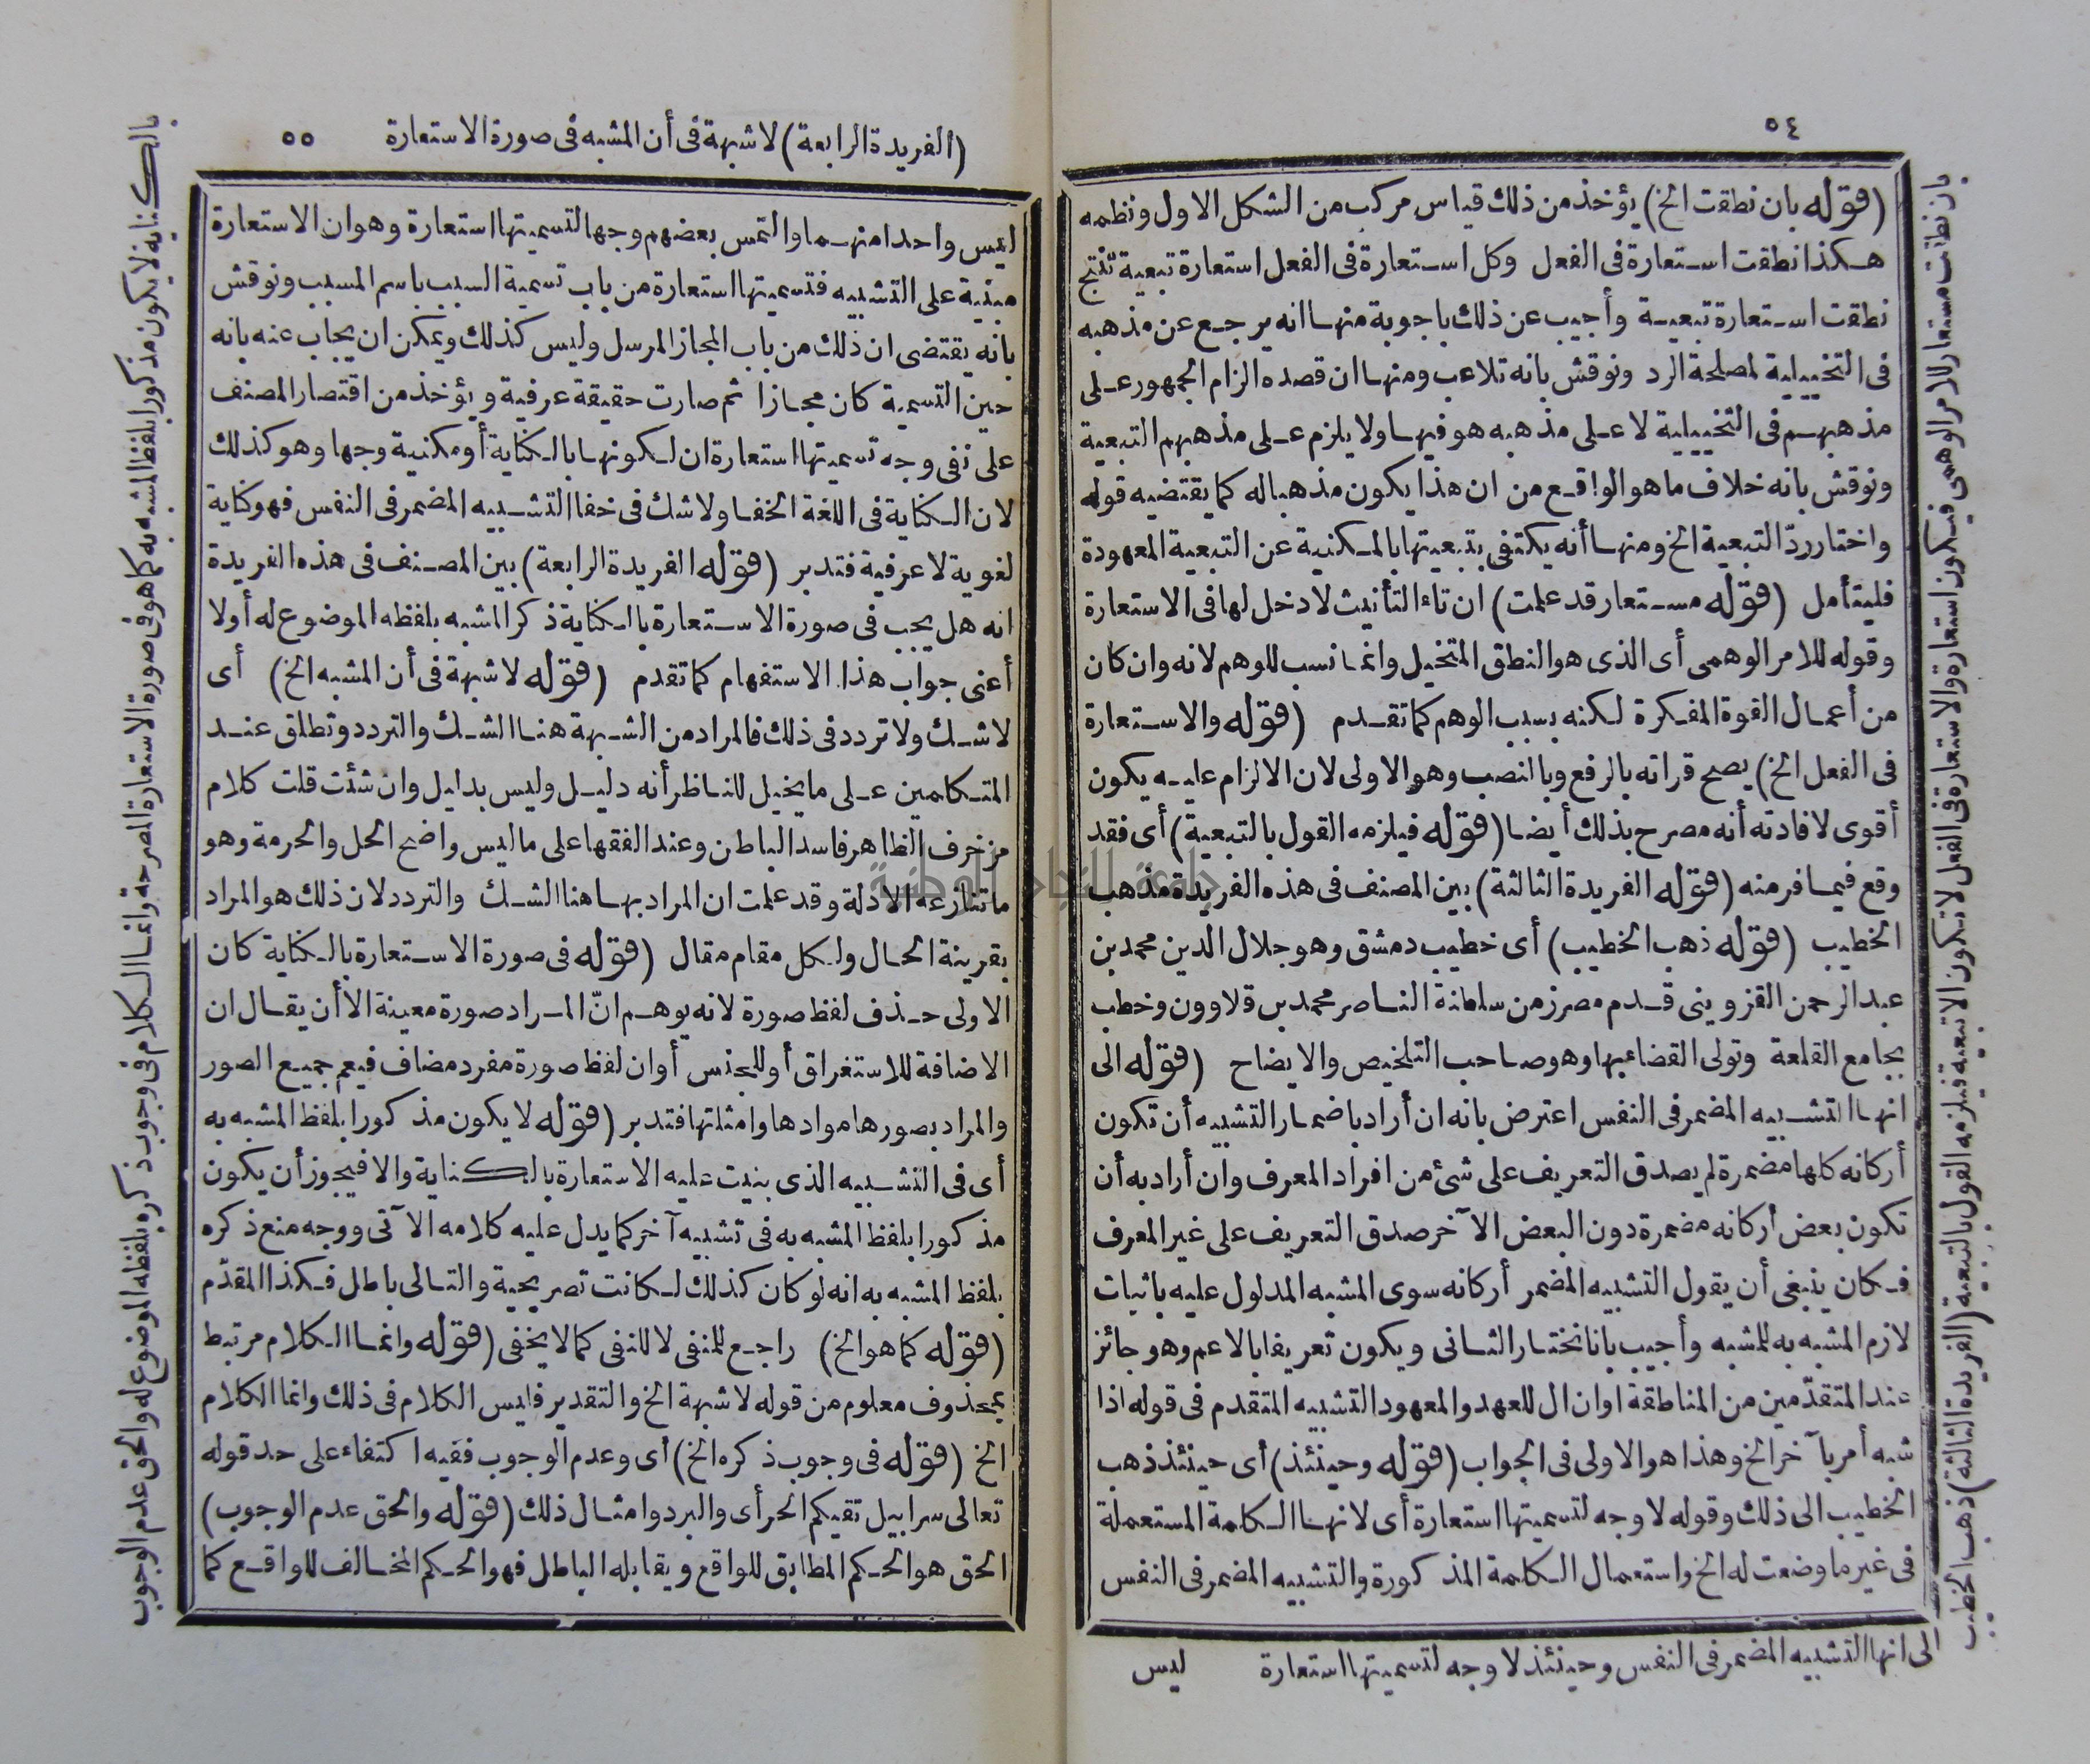 ٥٤
(قوله بان نطقت الخ) يؤخذ من ذلك قياس مركب من الشكل الاول ونظمه
هكذا نطقت استعارة فى الفعل وكل استعارة فى الفعل استعارة تبعية تنتج
نطقت استعارة تبعية وأجيب عن ذلك باجوبة منها انه يرجع عن مذهبه
فى التخييلية لمصلحة الرد ونوقش بانه تلاعب ومنها ان قصده الزام الجمهور على
مذهبهم فى التخييلية لا على مذهبه هو فيها ولا يلزم على مذهبهم التبعية
ونوقش بانه خلاف ما هو الواقع من ان هذا يكون مذهبا له كما يقتضيه قوله
واختار ردّ التبعية الخ ومنها أنه يكتفى بتبعيتها بالمكنية عن التبعية المعهودة
فليتأمل (قوله مستعار قد علمت) ان تاء التأنيث لا دخل لها فى الاستعارة
وقوله للامر الوهمى أى الذى هو النطق المتخيل وانما نسب للوهم لانه وان كان
من أعمال القوة المفكرة لكنه بسبب الوهم كما تقدم (قوله والاستعارة
فى الفعل الخ) يصح قراته بالرفع وبالنصب وهو الاولى لان الالزام عليه يكون
أقوى لافادته أنه مصرح بذلك أيضا (قوله فيلزمه القول بالتبعية) أى فقد
وقع فيما فر منه (قوله الفريدة الثالثة) بين المصنف فى هذه الفريدة مذهب
الخطيب (قوله ذهب الخطيب) أى خطيب دمشق وهو جلال الدين محمد بن
عبد الرحمن القزوينى قدم مصر زمن سلطنة الناصر محمد بن قلاوون وخطب
بجامع القلعة وتولى القضاء بها وهو صاحب التلخيص والايضاح (قوله الى
انها التشبيه المضمر فى النفس اعترض بانه ان أراد باضمار التشبيه أن تكون
أركانه كلها مضمرة لم يصدق التعريف على شئ من افراد المعرف وان أراد به أن
تكون بعض أركانه مضمرة دون البعض الآخر صدق التعريف على غير المعرف
فكان ينبغى أن يقول التشبيه المضمر أركانه سوى المشبه المدلول عليه باثبات
لازم المشبه به للمشبه وأجيب بانا نختار الثانى ويكون تعريفا بالاعم وهو جائز
عند المتقدّمين من المناطقة اوان ال للعهد والمعهود التشبيه المتقدم فى قوله اذا
شبه أمر بآخر الخ وهذا هو الاولى فى الجواب (قوله وحينئذ) أى حينئذ ذهب
الخطيب الى ذلك وقوله لا وجه لتسميتها استعارة أى لانها الكلمة المستعملة
فى غير ما وضعت له الخ واستعمال الكلمة المذكورة والتشبيه المضمر فى النفس
بان نطقت مستعار للامر الوهمى فيكون استعارة والاستعارة فى الفعل لا تكون الا تبعية فيلزمه القول بالتبعية (الفريدة الثالثة) ذهب الخطيب
الى انها التشبيه المضمر فى النفس وحينئذ لا وجه لتسميتها استعارة
ليس
(الفريدة الرابعة) لا شبهة فى أن المشبه فى صورة الاستعارة ٥٥
ليس واحدا منهما والتمس بعضهم وجها لتسميتها استعارة وهو ان الاستعارة
مبنية على التشبيه فتسميتها استعارة من باب تسمية السبب باسم المسبب ونوقش
بانه يقتضى ان ذلك من باب المجاز المرسل وليس كذلك ويمكن ان يجاب عنه بانه
حين التسمية كان مجازا ثم صارت حقيقة عرفية ويؤخذ من اقتصار المصنف
على نفى وجه تسميتها استعارة ان لكونها بالكناية أو مكنية وجها وهو كذلك
لان الكناية فى اللغة الخفا ولا شك فى خفا التشبيه المضمر فى النفس فهو كناية
لغوية لا عرفية فتدبر (قوله الفريدة الرابعة) بين المصنف فى هذه الفريدة
انه هل يجب فى صورة الاستعارة بالكناية ذكر المشبه بلفظه الموضوع له أولا
أعنى جواب هذا الاستفهام كما تقدم (قوله لا شبهة فى أن المشبه الخ) أى
لا شك ولا تردد فى ذلك فالمراد من الشبهة هنا الشك والتردد وتطلق عند
المتكلمين على ما يخيل للناظر أنه دليل وليس بدليل وان شئت قلت كلام
مزخرف الظاهر فاسد الباطن وعند الفقها على ما ليس واضح الحل والحرمة وهو
ما تنازعه الادلة وقد علمت ان المراد بها هنا الشك والتردد لان ذلك هو المراد
بقرينة الحال ولكل مقام مقال (قوله فى صورة الاستعارة بالكناية كان
الاولى حذف لفظ صورة لانه يوهم انّ المراد صورة معينة الا أن يقال ان
الاضافة للاستغراق أو للجنس أوان لفظ صورة مفرد مضاف فيعم جميع الصور
والمراد بصورها موادها وامثلتها فتدبر (قوله لا يكون مذكورا بلفظ المشبه به
أى فى التشبيه الذى بنيت عليه الاستعارة بالكناية والا فيجوز أن يكون
مذكورا بلفظ المشبه به فى تشبيه آخر كما يدل عليه كلامه الآتى ووجه منع ذكره
بلفظ المشبه به انه لو كان كذلك لكانت تصريحية والتالى باطل فكذا المقدّم
(قوله كما هو الخ) راجع للمنفى لا للنفى كما لا يخفى (قوله وانما الكلام مرتبط
بمحذوف معلوم من قوله لا شبهة الخ والتقدير فليس الكلام فى ذلك وانما الكلام
الخ (قوله فى وجوب ذكره الخ) أى وعدم الوجوب ففيه اكتفاء على حد قوله
تعالى سرابيل تقيكم الحر أى والبرد وامثال ذلك (قوله والحق عدم الوجوب)
الحق هو الحكم المطابق للواقع ويقابله الباطل فهو الحكم المخالف للواقع كما
بالكناية لا يكون مذكورا بلفظ المشبه به كما هو فى صورة الاستعارة المصرحة وانما الكلام فى وجوب ذكره بلفظه الموضوع له والحق عدم الوجوب